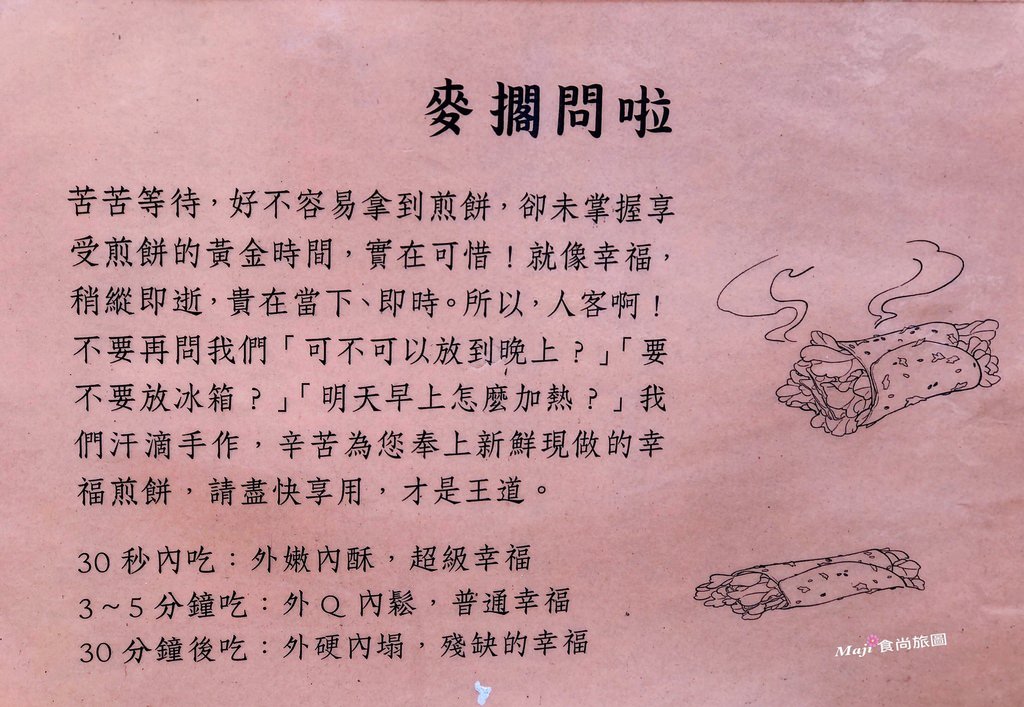 麥擱問啦
苦苦等待，好不容易拿到煎餅，卻未掌握享
受煎餅的黃金時間，實在可惜！就像幸福，
稍縱即逝，貴在當下、即時。所以，人客啊！
不要再問我們「可不可以放到晚上？」「要
不要放冰箱？」「明天早上怎麼加熱？」我
們汗滴手作，辛苦為您奉上新鮮現做的幸
福煎餅，請盡快享用，才是王道。
30 秒內吃：外嫩內酥，超級幸福
3～5 分鐘吃：外 Q 內鬆，普通幸福
30 分鐘後吃：外硬內塌，殘缺的幸福
Maji 食尚旅圖